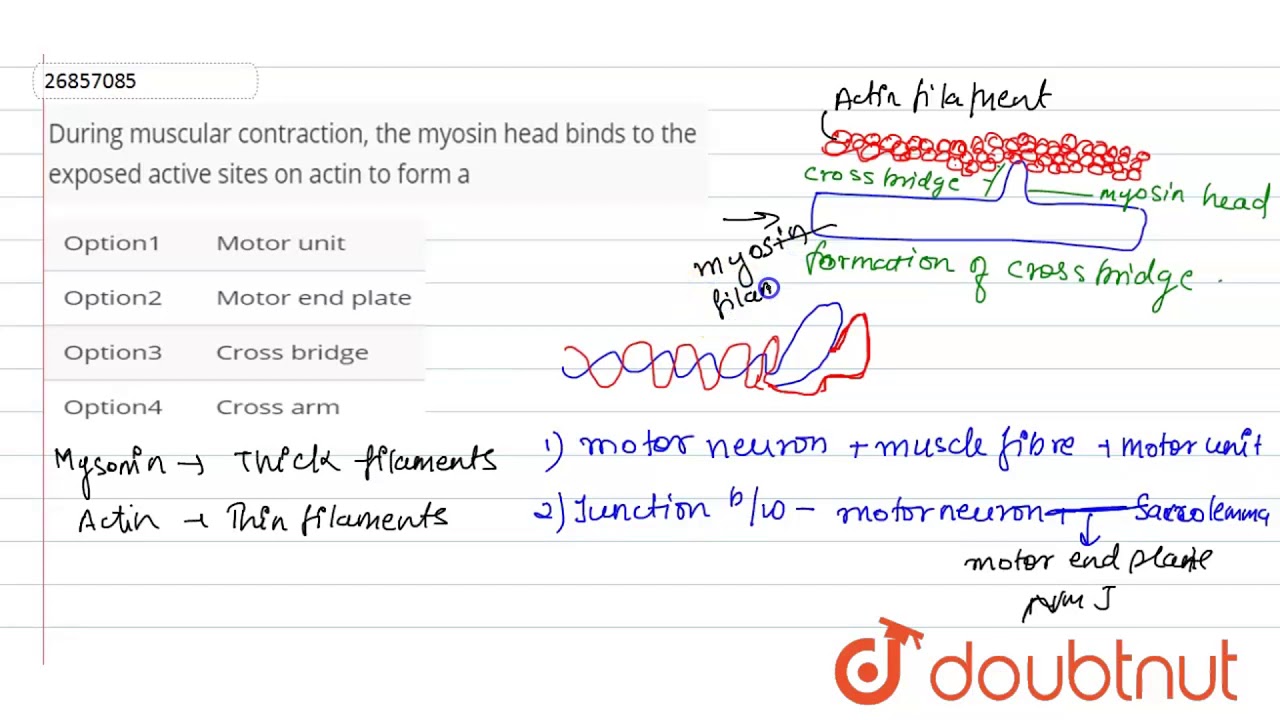 26857085
During muscular contraction, the myosin head binds to the
exposed active sites on actin to form a
Option1 Motor unit
Option2 Motor end plate
Option3 Cross bridge
Option4 Cross arm
Actin filament
cross bridge
myosin head
myosin
filam
formation of cross bridge
Mysomin → Thick filaments
Actin → Thin filaments
1) motor neuron + muscle fibre → motor unit
2) Junction b/w - motor neuron + Sarcolemma
motor end plate
NMJ
doubtnut